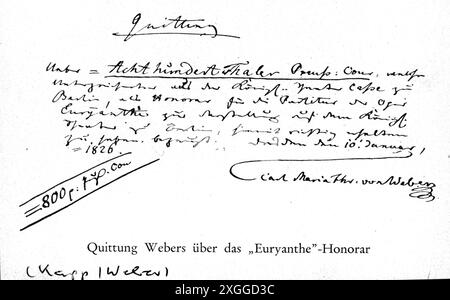 Quittung
Ueber = Acht hundert Thaler Preuß: Cour, welche
Unterzeichneter aus der Königl. Theater Casse zu
Berlin, als Honorar für die Partitur der Oper
Euryanthe zur Darstellung auf dem Königl.
Theater zu Berlin, hiermit richtig erhalten
zu haben bezeugt. Dresden den 10. Januar,
= 1826.
Carl Maria von Weber
= 800 r. Cour
Quittung Webers über das „Euryanthe"-Honorar
(Kapp / Weber)
alamy
Image ID: 2XGGD3C
www.alamy.com